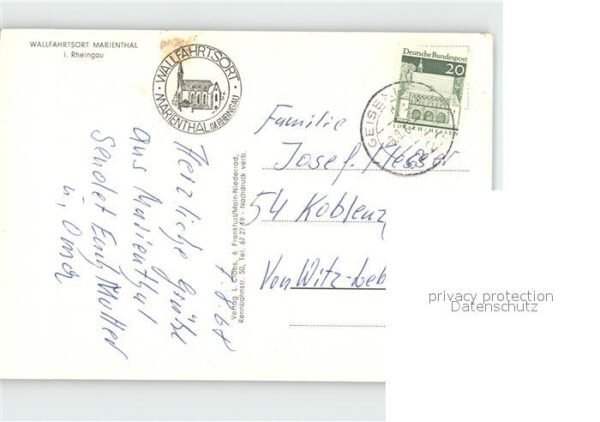 WALLFAHRTSORT MARIENTHAL
i. Rheingau
· WALLFAHRTSORT ·
MARIENTHAL IM RHEINGAU
Deutsche Bundespost
20
GEISEN
Familie
Josef Hesser
54 Koblenz
Von Witz-leb
Herzliche Grüße
aus Marienthal
Sendet Euch Mutter
u. Oma
7.8.68
Verlag L. Cloos, 6 Frankfurt/Main-Niederrad,
Rennbahnstr. 50, Tel. 67 27 19 - Nachdruck verb.
privacy protection
Datenschutz